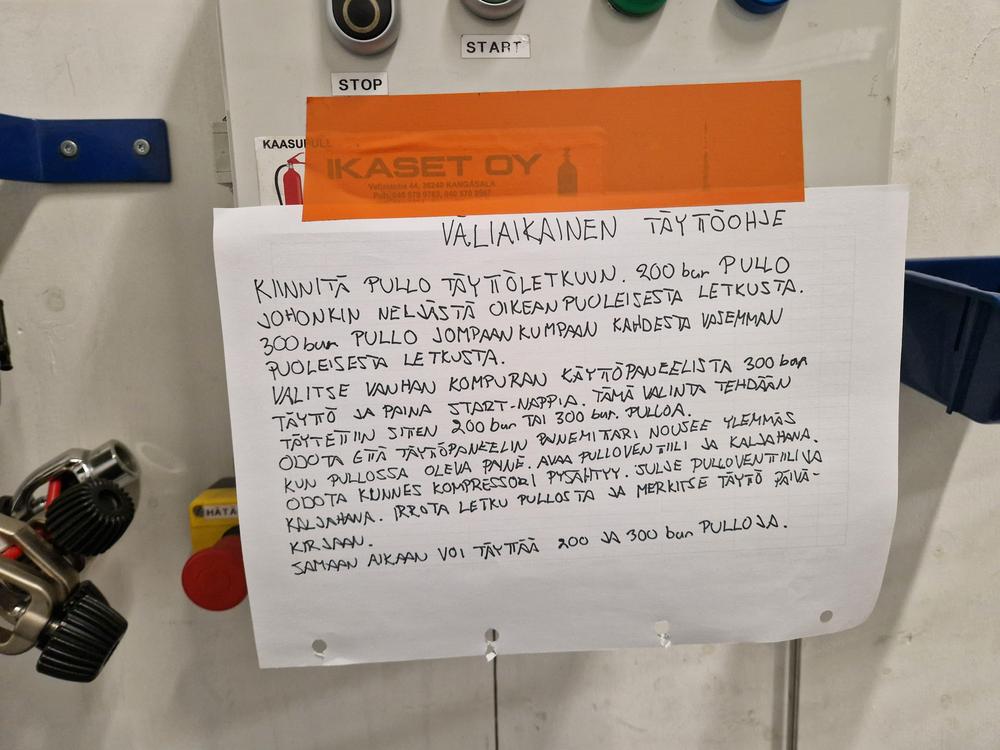 START
STOP
KAASUPULL
IKASET OY
VÄLIAIKAINEN TÄYTTÖOHJE
KIINNITÄ PULLO TÄYTTÖLETKUUN. 200 bar PULLO
JOHONKIN NELJÄSTÄ OIKEANPUOLEISESTA LETKUSTA.
300 bar PULLO JOMPAANKUMPAAN KAHDESTA VASEMMAN
PUOLEISESTA LETKUSTA.
VALITSE VANHAN KOMPURAN KÄYTTÖPANEELISTA 300 bar
TÄYTTÖ JA PAINA START-NAPPIA. TÄMÄ VALINTA TEHDÄÄN
TÄYTETTIIN SITEN 200 bar TAI 300 bar PULLOA.
ODOTA ETTÄ TÄYTÖPANEELIN PAINEMITTARI NOUSEE YLEMMÄS
KUN PULLOSSA OLEVA PAINE. AVAA PULLOVENTTIILI JA KALJAHANA.
ODOTA KUNNES KOMPRESSORI PYSÄHTYY. SULJE PULLOVENTTIILI JA
KALJAHANA. IRROTA LETKU PULLOSTA JA MERKITSE TÄYTTÖ PÄIVÄ-
KIRJAAN.
SAMAAN AIKAAN VOI TÄYTTÄÄ 200 JA 300 bar PULLOJA.
HÄTÄ